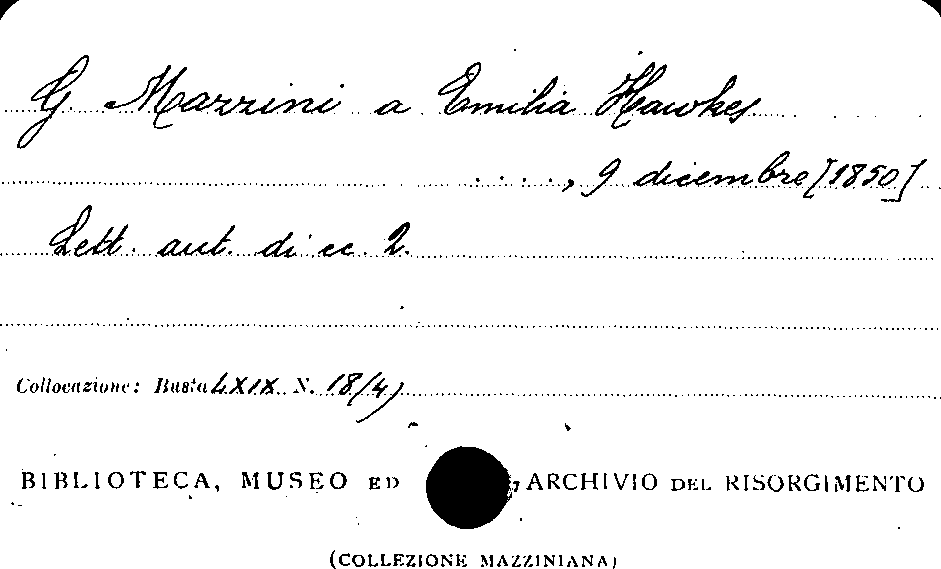 G. Mazzini a Emilia Hawkes
...., 9 dicembre [1850]
Lett. aut. di cc. 2.
Collocazione: Busta LXIX N. 18/4)
BIBLIOTECA, MUSEO ED ARCHIVIO DEL RISORGIMENTO
(COLLEZIONE MAZZINIANA)